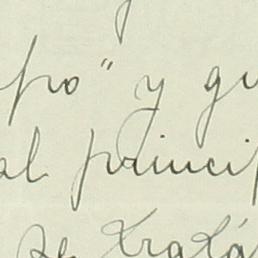 po" y qu
al princip
se tratá